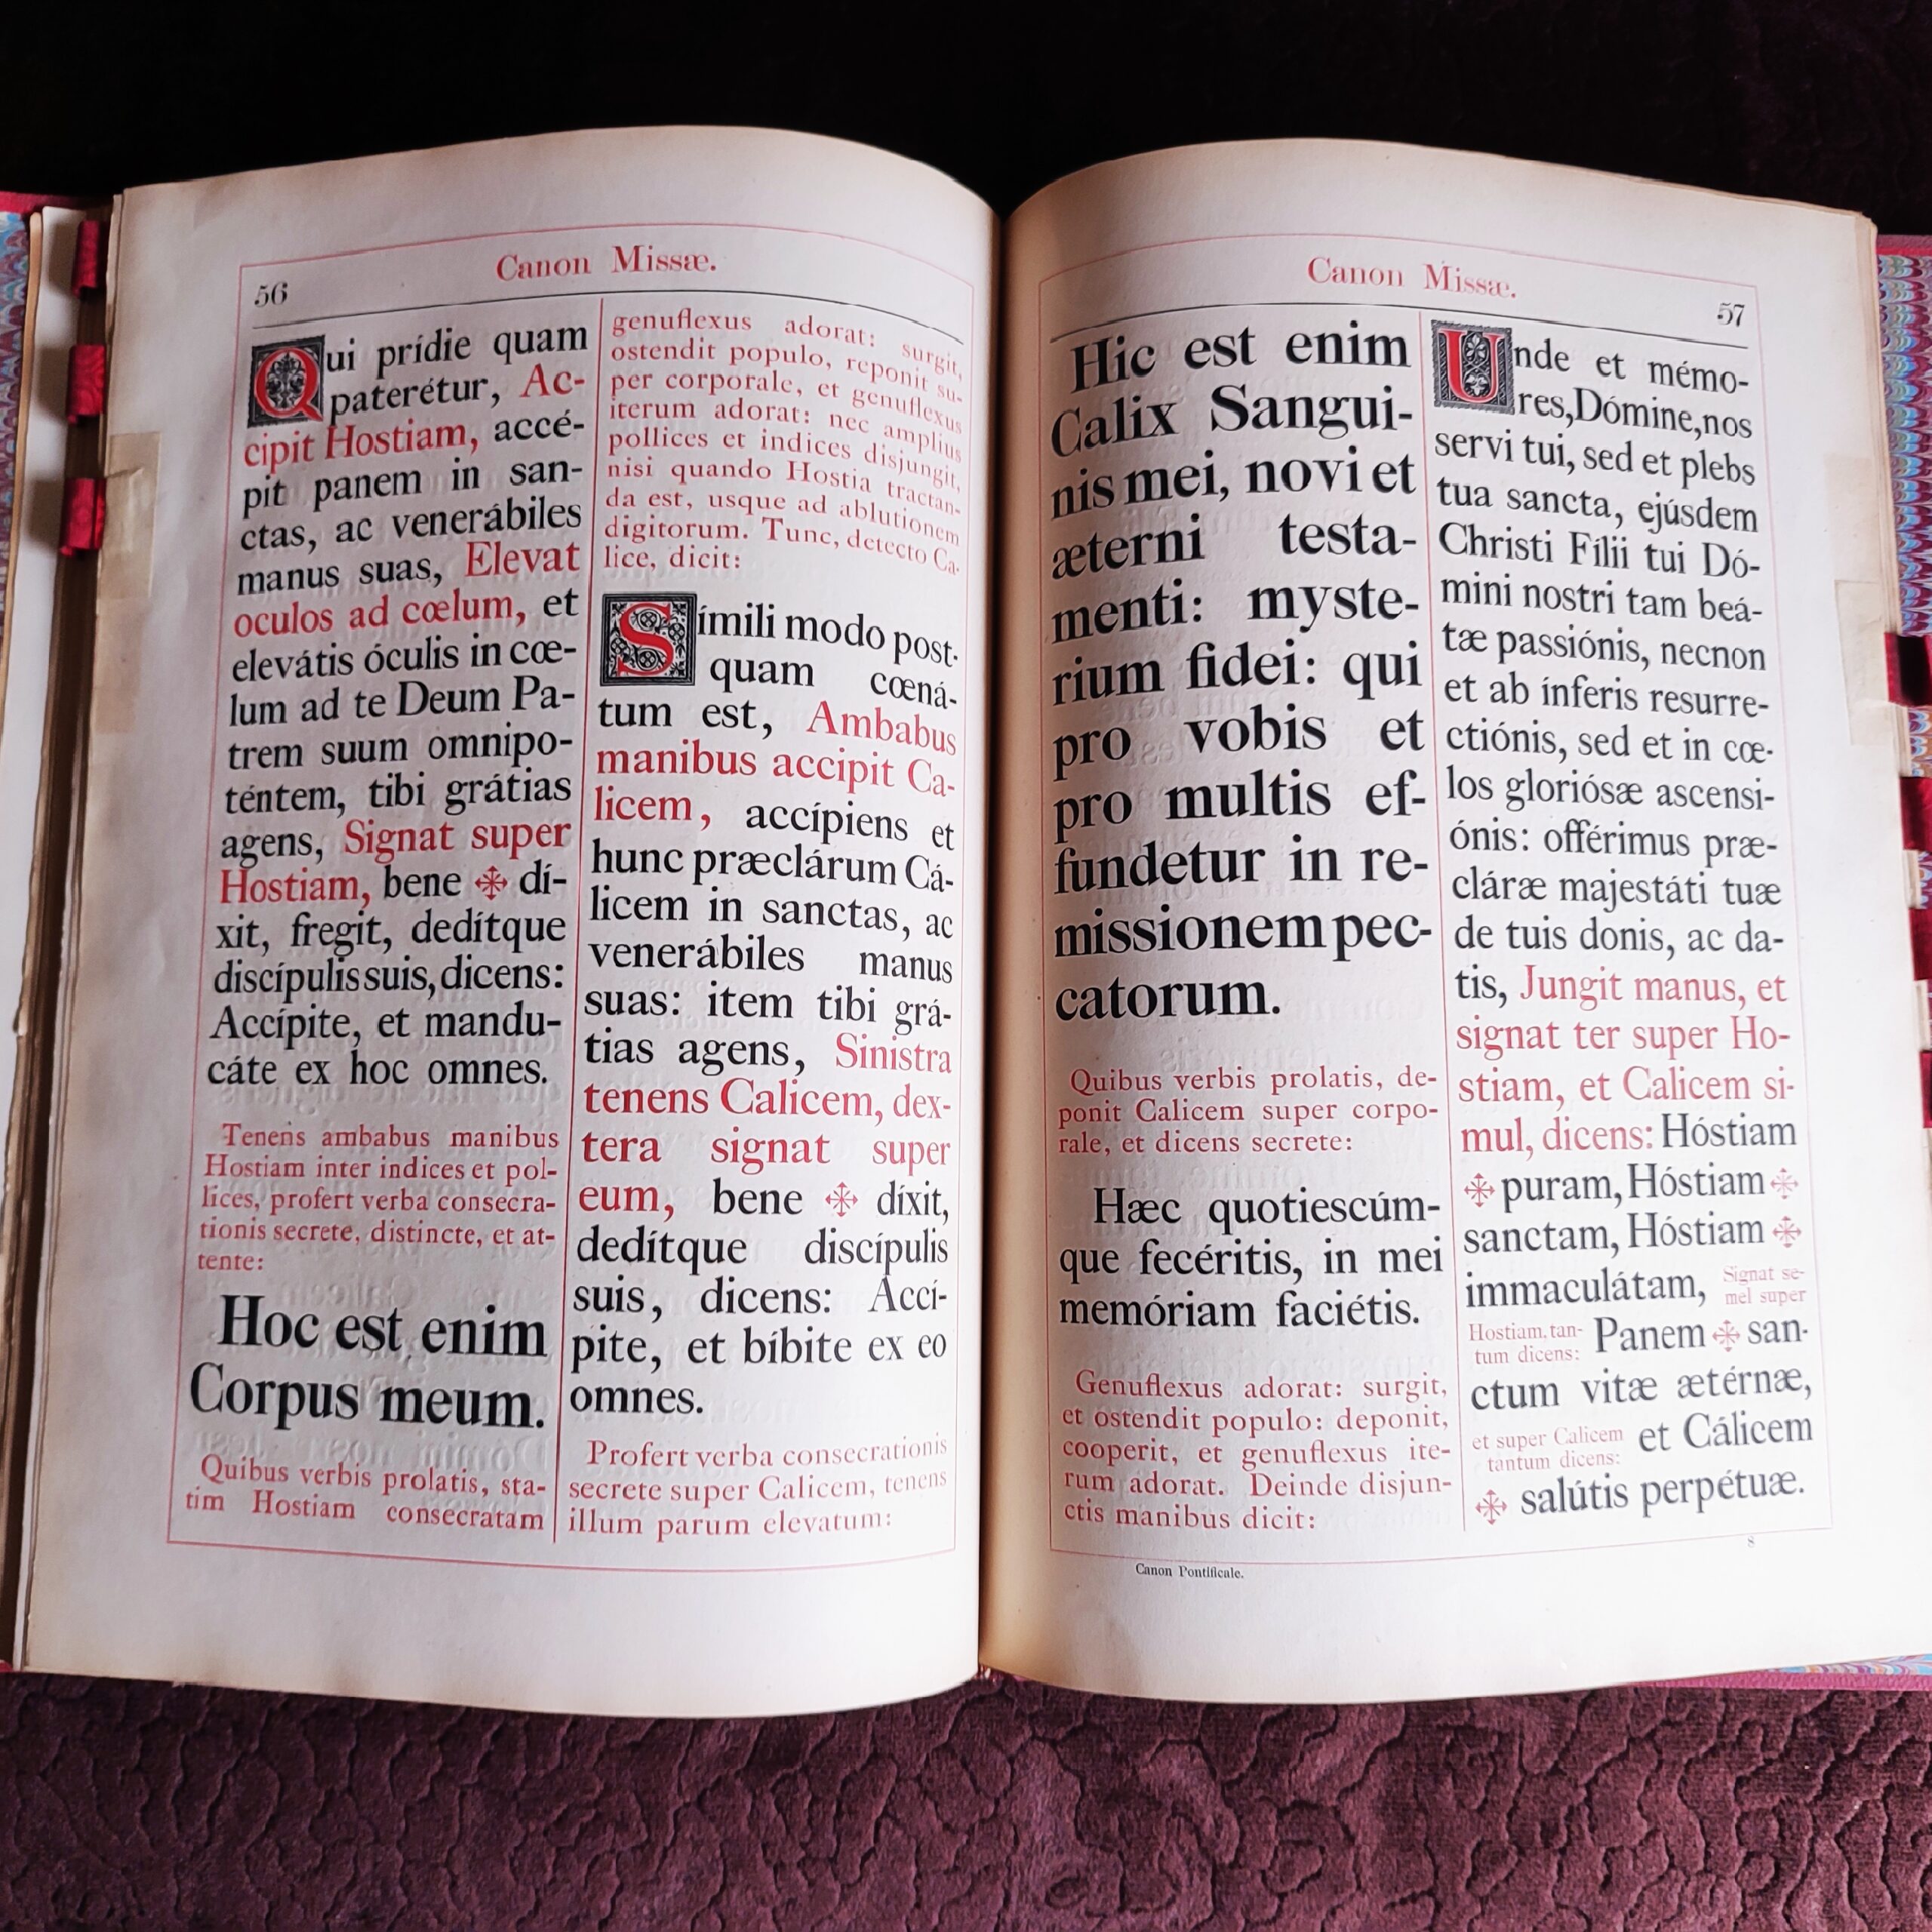 56
Canon Missæ.
Qui prídie quam
paterétur, Ac-
cipit Hostiam, accé-
pit panem in san-
ctas, ac venerábiles
manus suas, Elevat
oculos ad cœlum, et
elevátis óculis in cœ-
lum ad te Deum Pa-
trem suum omnipo-
téntem, tibi grátias
agens, Signat super
Hostiam, bene ✠ dí-
xit, fregit, dedítque
discípulis suis, dicens:
Accípite, et mandu-
cáte ex hoc omnes.
Tenens ambabus manibus
Hostiam inter indices et pol-
lices, profert verba consecra-
tionis secrete, distincte, et at-
tente:
Hoc est enim
Corpus meum.
Quibus verbis prolatis, sta-
tim Hostiam consecratam
genuflexus adorat: surgit,
ostendit populo, reponit su-
per corporale, et genuflexus
iterum adorat: nec amplius
pollices et indices disjungit,
nisi quando Hostia tractan-
da est, usque ad ablutionem
digitorum. Tunc, detecto Ca-
lice, dicit:
Símili modo post-
quam cœná-
tum est, Ambabus
manibus accipit Ca-
licem, accípiens et
hunc præclárum Cá-
licem in sanctas, ac
venerábiles manus
suas: item tibi grá-
tias agens, Sinistra
tenens Calicem, dex-
tera signat super
eum, bene ✠ díxit,
dedítque discípulis
suis, dicens: Accí-
pite, et bíbite ex eo
omnes.
Profert verba consecrationis
secrete super Calicem, tenens
illum parum elevatum:
Canon Missæ.
57
Hic est enim
Calix Sangui-
nis mei, novi et
æterni testa-
menti: myste-
rium fidei: qui
pro vobis et
pro multis ef-
fundetur in re-
missionem pec-
catorum.
Quibus verbis prolatis, de-
ponit Calicem super corpo-
rale, et dicens secrete:
Hæc quotiescúm-
que fecéritis, in mei
memóriam faciétis.
Genuflexus adorat: surgit,
et ostendit populo: deponit,
cooperit, et genuflexus ite-
rum adorat. Deinde disjun-
ctis manibus dicit:
Unde et mémo-
res, Dómine, nos
servi tui, sed et plebs
tua sancta, ejúsdem
Christi Fílii tui Dó-
mini nostri tam beá-
tæ passiónis, necnon
et ab ínferis resurre-
ctiónis, sed et in cœ-
los gloriósæ ascensi-
ónis: offérimus præ-
cláræ majestáti tuæ
de tuis donis, ac da-
tis, Jungit manus, et
signat ter super Ho-
stiam, et Calicem si-
mul, dicens: Hóstiam
✠ puram, Hóstiam ✠
sanctam, Hóstiam ✠
immaculátam, Signat se-
mel super
Hostiam, tan-
tum dicens: Panem ✠ san-
ctum vitæ ætérnæ,
et super Calicem
tantum dicens: et Cálicem
✠ salútis perpétuæ.
Canon Pontificale.
8